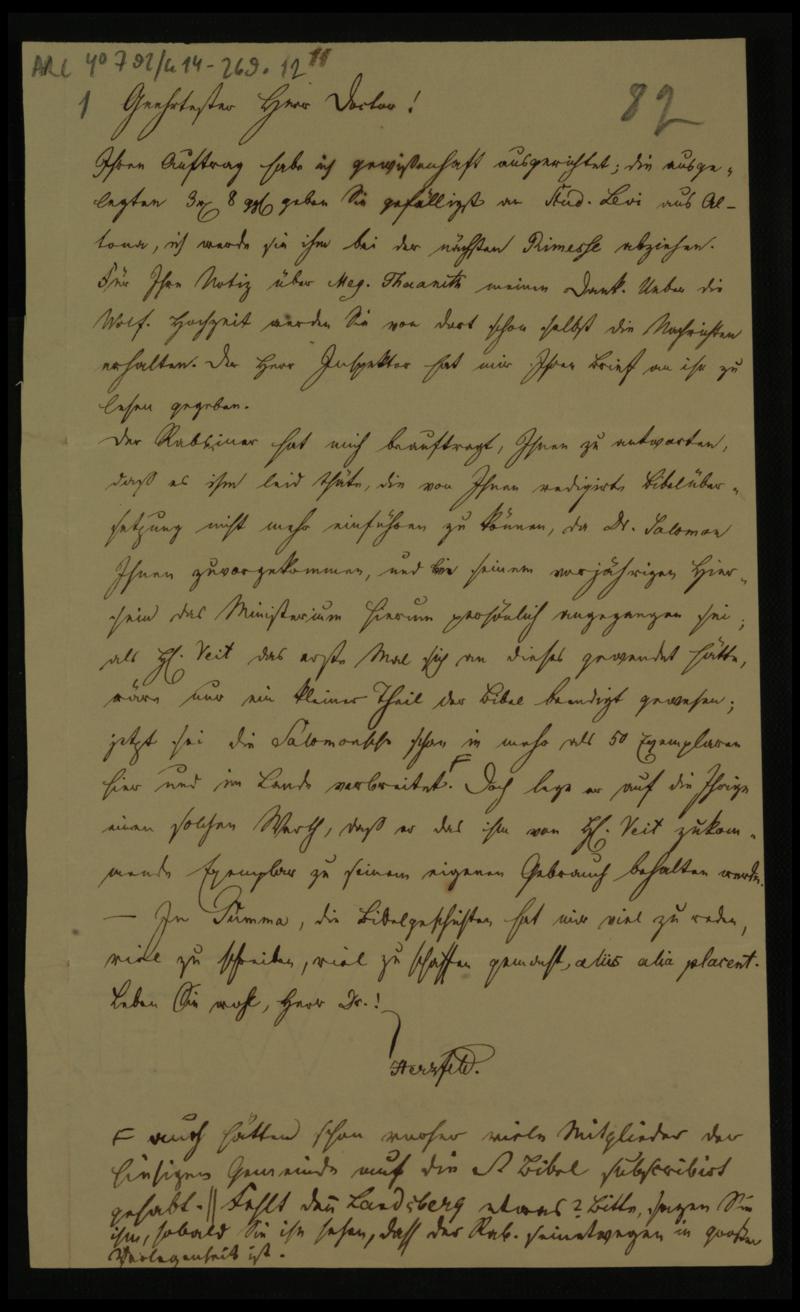 ARC 4° 792/G 14-269. 12
82
1 Geehrtester Herr Doctor!
Ihren Auftrag habe ich gewissenhaft ausgerichtet; die ausge-
legten 3 8 geben Sie gefälligst an Stud. Levi aus Al-
tona, ich werde sie ihm bei der nächsten Rimesse abziehen.
Für Ihre Notiz über Meg. Thaanith meinen Dank. Ueber die
Wolf. Hochzeit werden Sie von dort schon selbst die Nachrichten
erhalten. Der Herr Inspektor hat mir Ihren Brief an ihn zu
lesen gegeben.
Der Rabbiner hat mich beauftragt, Ihnen zu antworten,
daß es ihm leid thäte, die von Ihnen redigirte Bibelüber-
setzung nicht mehr einführen zu können, da Dr. Salomon
Ihnen zuvorgekommen, und bei seinem vorjährigen Hier-
sein das Ministerium hierum persönlich angegangen sei;
als H. Veit das erste Mal sich an dieses gewendet hätte,
wäre nur ein kleiner Theil der Bibel beendigt gewesen;
jetzt sei die Salomonsche schon in mehr als 50 Exemplaren
hier und im Lande verbreitet. F Doch lege er auf die Ihrige
einen solchen Werth, daß er das ihm von H. Veit zukom-
mende Exemplar zu seinem eigenen Gebrauch behalten werde.
— In Summa, die Bibelgeschichten hat mir viel zu reden,
viel zu schreiben, viel zu schaffen gemacht, aliis alia placent.
Leben Sie wohl, Herr Dr.!
Herzfeld.
F auch hätten schon vorher viele Mitglieder der
hiesigen Gemeinde auf die Bibel subscribirt
gehabt. || Fehlt den Landsberg etwas? Bitte, sagen Sie
ihm, sobald Sie ihn sehen, daß der Rab. seinetwegen in großer
Verlegenheit ist.